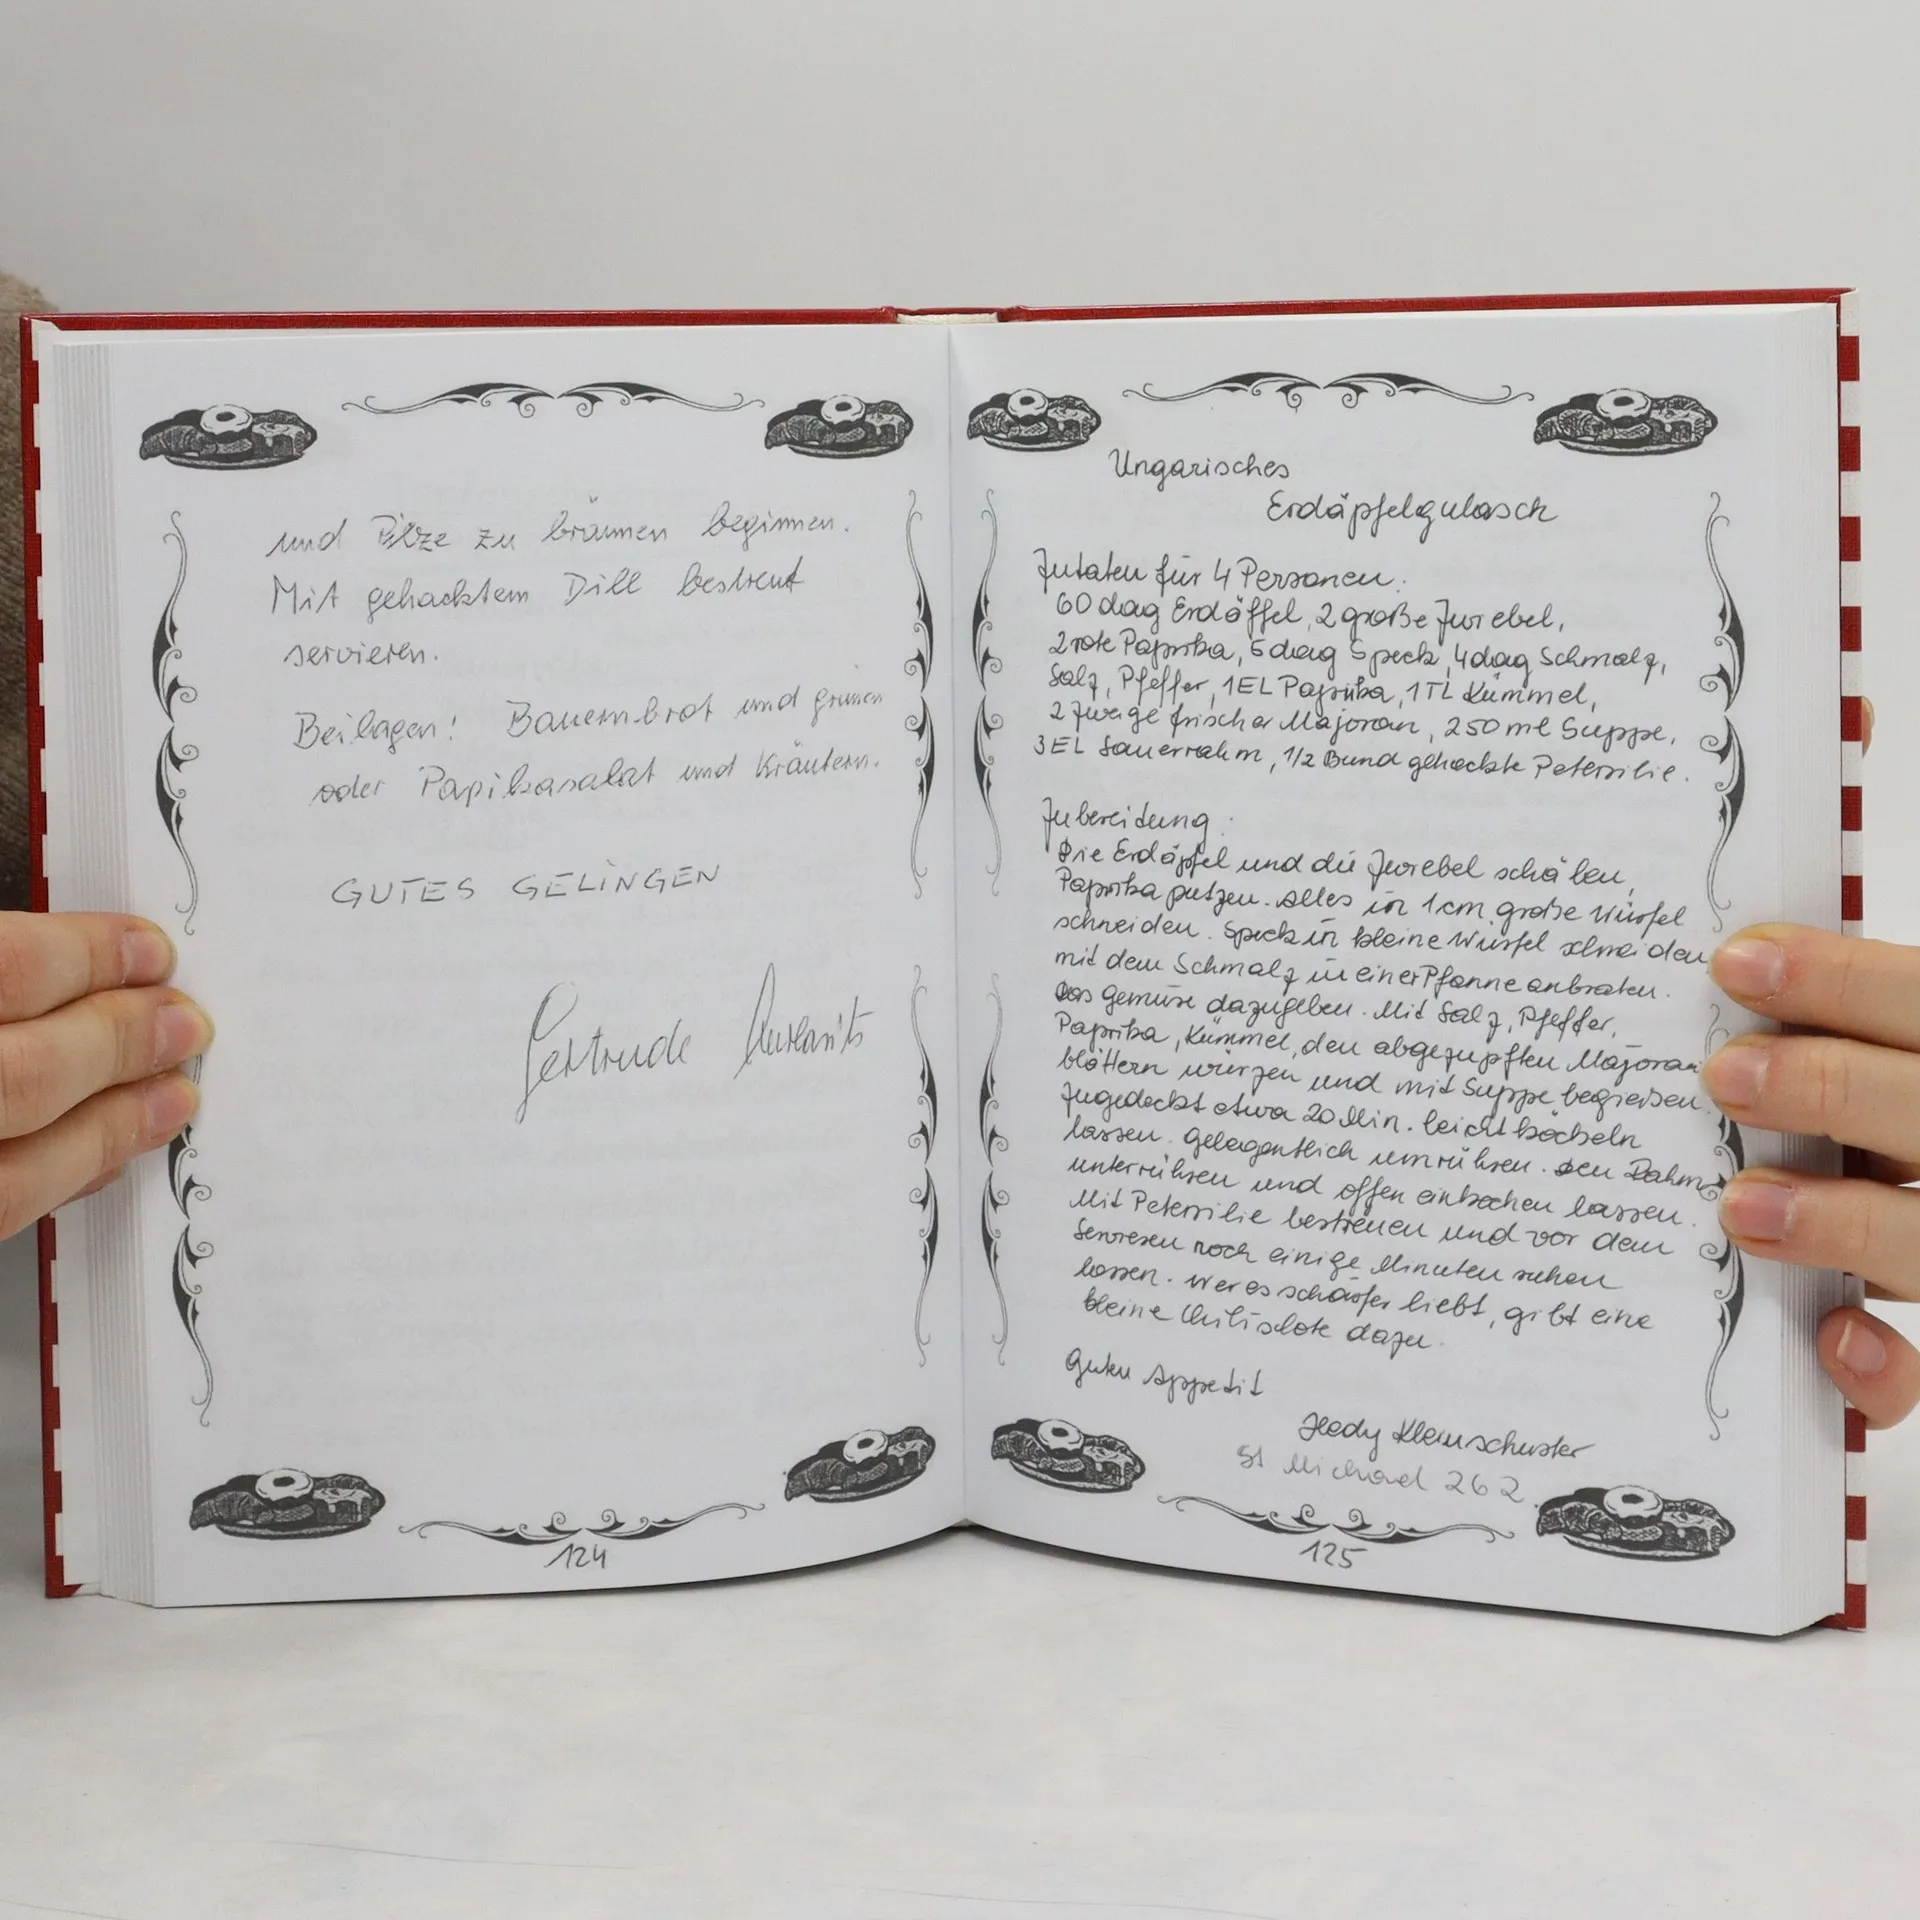 und Pilze zu bräunen beginnen.
Mit gehacktem Dill bestreut
servieren.
Beilagen! Bauernbrot und grünen
oder Papikasalat und Kräutern.
GUTES GELINGEN
Gertrude
124
Ungarisches
Erdäpfelgulasch
Zutaten für 4 Personen.
60 dag Erdöffel, 2 große Zwiebel,
2 rote Paprika, 5 dag Speck, 4 dag Schmalz,
Salz, Pfeffer, 1EL Paprika, 1TL Kümmel,
2 Zweige frischer Majoran, 250 ml Suppe,
3EL Sauerrahm, 1/2 Bund gehackte Petersilie.
Zubereitung:
Die Erdäpfel und die Zwiebel schälen,
Paprika putzen. Alles in 1cm große Würfel
schneiden. Speck in kleine Würfel schneiden
mit dem Schmalz in einer Pfanne anbraten.
Das Gemüse dazugeben. Mit Salz, Pfeffer,
Paprika, Kümmel, den abgezupften Majoran
blättern würzen und mit Suppe begießen.
Zugedeckt etwa 20 Min. leicht köcheln
lassen. Gelegentlich umrühren. Den Rahm
unterrühren und offen einkochen lassen.
Mit Petersilie bestreuen und vor dem
Servieren noch einige Minuten ruhen
lassen. Wer es schärfer liebt, gibt eine
kleine Chilischote dazu.
Guten Appetit
Hedy Kleinschuster
St Michael 262
125